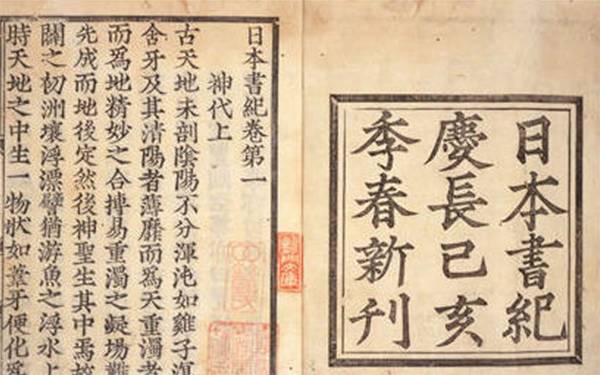 日本書紀
慶長己亥
季春新刊
日本書紀卷第一
神代上
古天地未剖陰陽不分渾沌如雞子溟
含牙及其清陽者薄靡而爲天重濁者
而爲地精妙之合搏易重濁之凝場難
先成而地後定然後神聖生其中焉故
闢之初洲壤浮漂譬猶游魚之浮水上
時天地之中生一物狀如葦牙便化爲